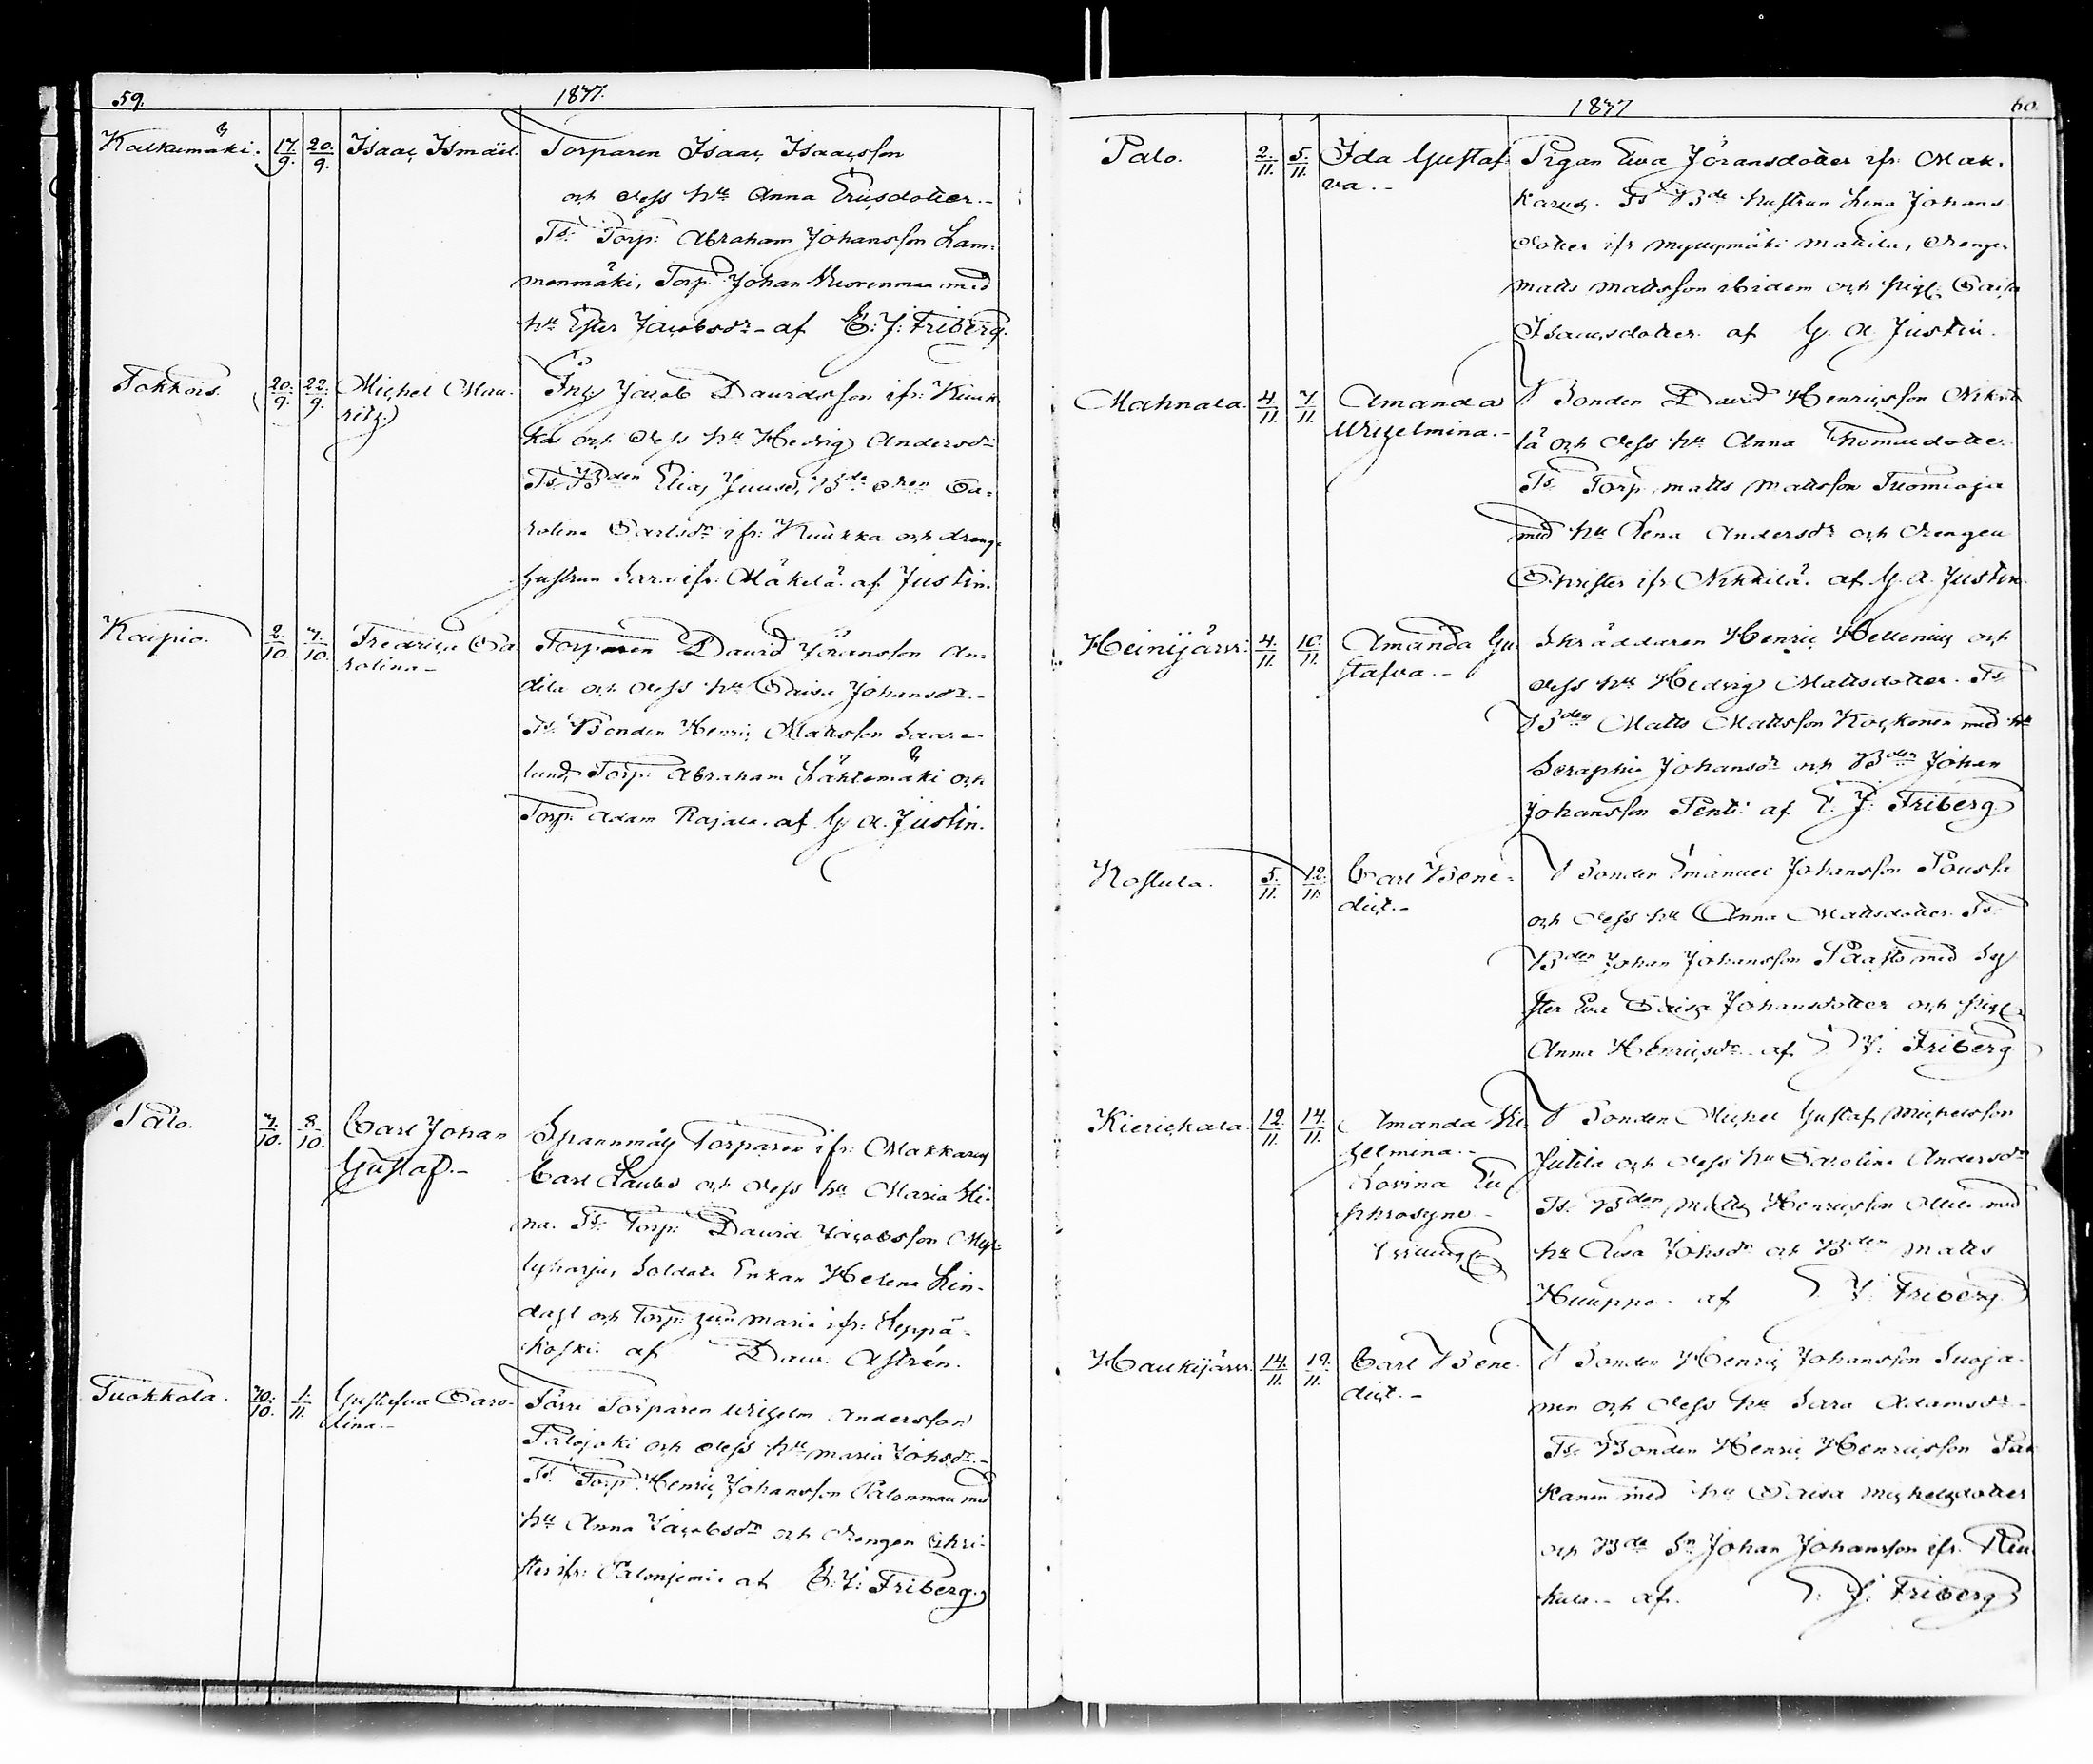 59.
1877.
Kalkunmäki. 17./9. 20./9. Isaac Ismäel. Torparen Isaac Isaacsson
och dess hu Anna Ericsdotter.-
Ts: Torp: Abraham Johansson Lam-
menmäki, Torp: Johan Wuorenmaa med
hu Ester Jacobsdr- af E: J: Friberg.
Tokkois. 20./9. 22./9. Michel Mau- Inh: Jacob Davidsson ifr: Kiuk
ritz.) ka och dess hu Hedvig Andersdr
Ts: Bden Elias Juuse, Bde dren Ca-
rolina Carlsdr ifr: Kiukka och dreng-
hustrun Sara ifr: Mäkelä. af Justin.
Kaipio. 2./10. 7./10. Fredrica Ca Torparen David Jöransson An-
rolina- dila och dess hu Caisa Johansdr.-
Ts: Bonden Henric Mattsson Saara-
lund, Torp: Abraham Lähtemäki och
Torp: Adam Rajala. af G. A. Justin.
Palo. 7./10. 8./10. Carl Johan Spannmåls Torparen ifr: Makkarus
Gustaf.- Carl Claubs och dess hu Maria Sti-
na. Ts: Torp: David Jacobsson Myl-
lyharju, Soldats Enkan Helena Lin-
dahl och Torp: hun Maria ifr: Leppä-
koski. af Dav. Astrén.
Tuokkola. 30./10. 1./11. Gustafva Caro- Förre Torparen Wilhelm Andersson
lina.- Palojoki och dess hu Maria Johsdr.-
Ts: Torp: Henric Johansson Palonmaa med
hu Anna Jacobsdr och drengen Chri-
ster ifr: Palonjemi. af E: J: Friberg.
1877
60.
Palo. 2./11. 5./11. Ida Gustaf- Pigan Eva Jöransdotter ifr: Mak-
va.- karus. Ts Bde hustrun Lena Johans
dotter ifr Myllymäki Mattila, drengen
Matts Mattsson ibidem och pig: Caisa
Isaacsdotter. af G. A. Justin.
Mahnala. 4./11. 7./11. Amanda Bonden David Henricsson Nikki
Wilhelmina.- lä och dess hu Anna Thomasdotter.
Ts: Torp: Matts Mattsson Tuomioja
med hu Lena Andersdr och drengen
Christer ifr Nikkilä. af G. A. Justin
Heinijärvi. 4./11. 10./11. Amanda Gu- Skräddaren Henric Hellenius och
stafva.- dess hu Hedvig Mattsdotter. Ts
Bden Matts Mattsson Koskonen med hu
Seraphia Johansdr och Bden Johan
Johansson Pentti af E. J: Friberg
Kostula. 5./11. 12./11. Carl Bene- Bonden Emanuel Johansson
dict.- och dess hu Anna Mattsdotter. Ts:
Bden Johan Johansson Paasto med Sy
ster Eva Caisa Johansdotter och pig:
Anna Henricsdr. af E. J: Friberg
Kierickala. 12./11. 14./11. Amanda Vil Bonden Michel Gustaf Michelsson
helmina.- Jutila och dess hu Carolina Andersdr
Lovina Eu Ts: Bden Matts Henricsson Ollila med
phrosyne - hu Lisa Johsdr och Bden Matts
Tvilling: Huuppo. af E. J. Friberg
Haukijärvi. 14./11. 19./11. Carl Bene- Bonden Henric Johansson Suoja-
dict.- nen och dess hu Sara Adamsdr-
Ts: Bonden Henric Henricsson
kanen med hu Caisa Michelsdotter
och Bde Sn Johan Johansson ifr.
kula.- af. E. J. Friberg